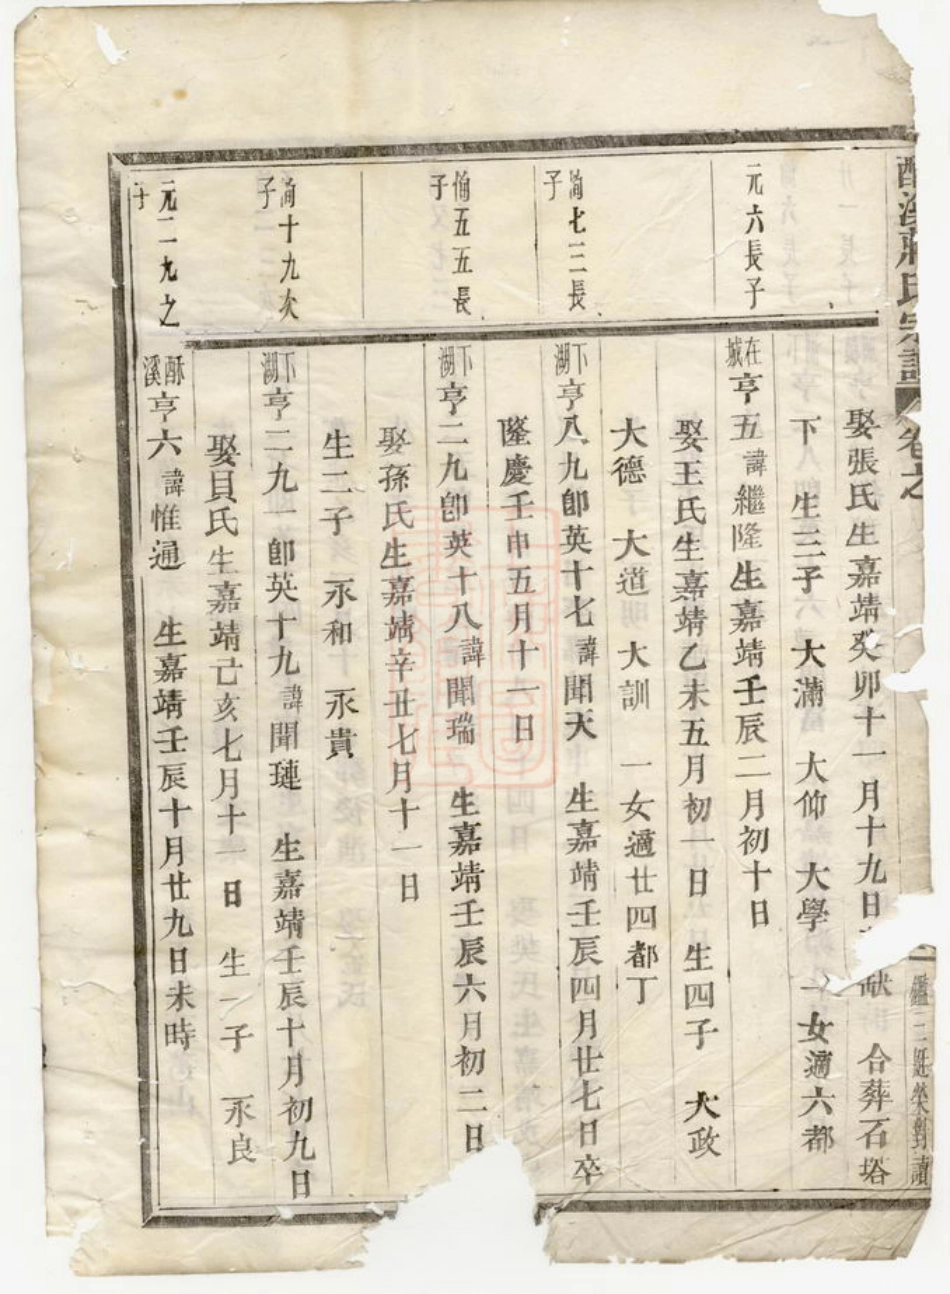 酥溪蔣氏宗譜
卷之
娶張氏生嘉靖癸卯十一月十九日
缺 合葬石塔
下 生三子 大滿 大仰 大學 一女適六都
元六長子
在城亨五諱繼隆生嘉靖壬辰二月初十日
娶王氏生嘉靖乙未五月初一日 生四子 大政
大德 大道 大訓 一女適廿四都丁
七三長子
下湖亨八九卽英十七諱聞天 生嘉靖壬辰四月廿七日卒
隆慶壬申五月十一日
五五長子
下湖亨二九卽英十八諱聞瑞 生嘉靖壬辰六月初二日
娶孫氏生嘉靖辛丑七月十一日
生二子 永和 永貴
十九次子
下湖亨二九一卽英十九諱聞璉 生嘉靖壬辰十月初九日
娶貝氏生嘉靖己亥七月十一日 生一子 永良
元二九之子
酥溪亨六諱惟通 生嘉靖壬辰十月廿九日未時